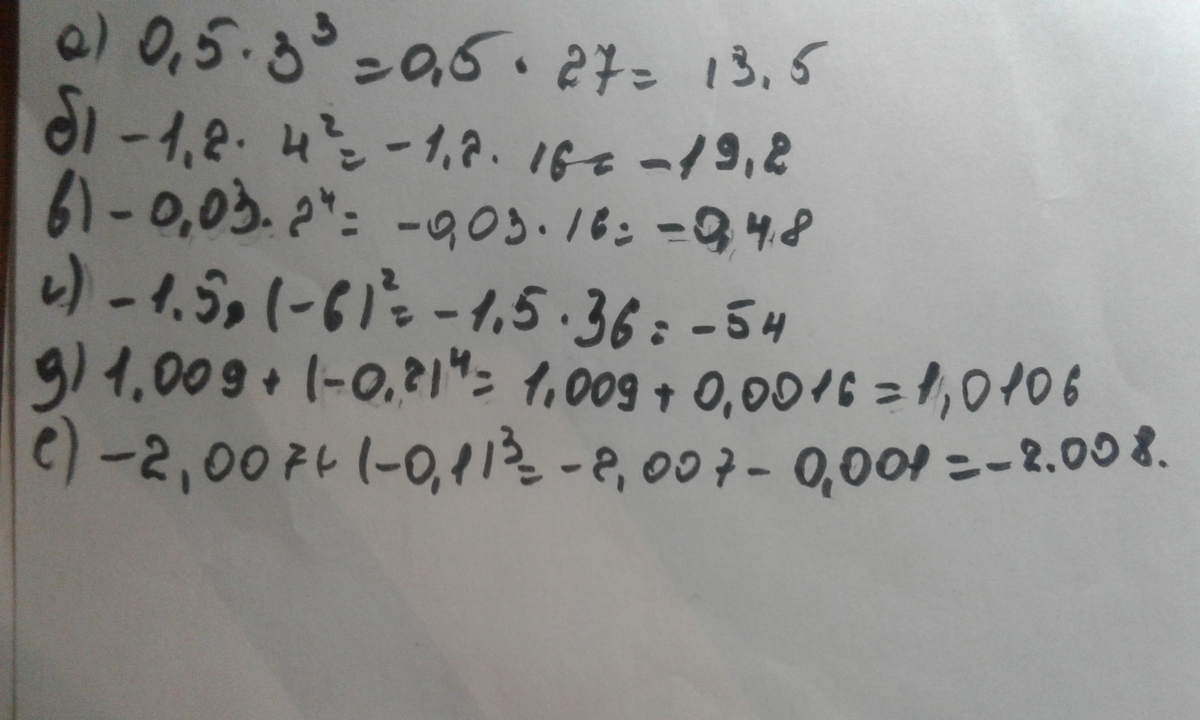 а) 0,5 · 3³ = 0,5 · 27 = 13.5
б) -1,2 · 4² = -1,2 · 16 = -19,2
в) -0,03 · 2⁴ = -0,03 · 16 = -0,48
г) -1.5 · (-6)² = -1,5 · 36 = -54
д) 1,009 + (-0,2)⁴ = 1,009 + 0,0016 = 1,0106
е) -2,007 + (-0,1)³ = -2,007 - 0,001 = -2.008.